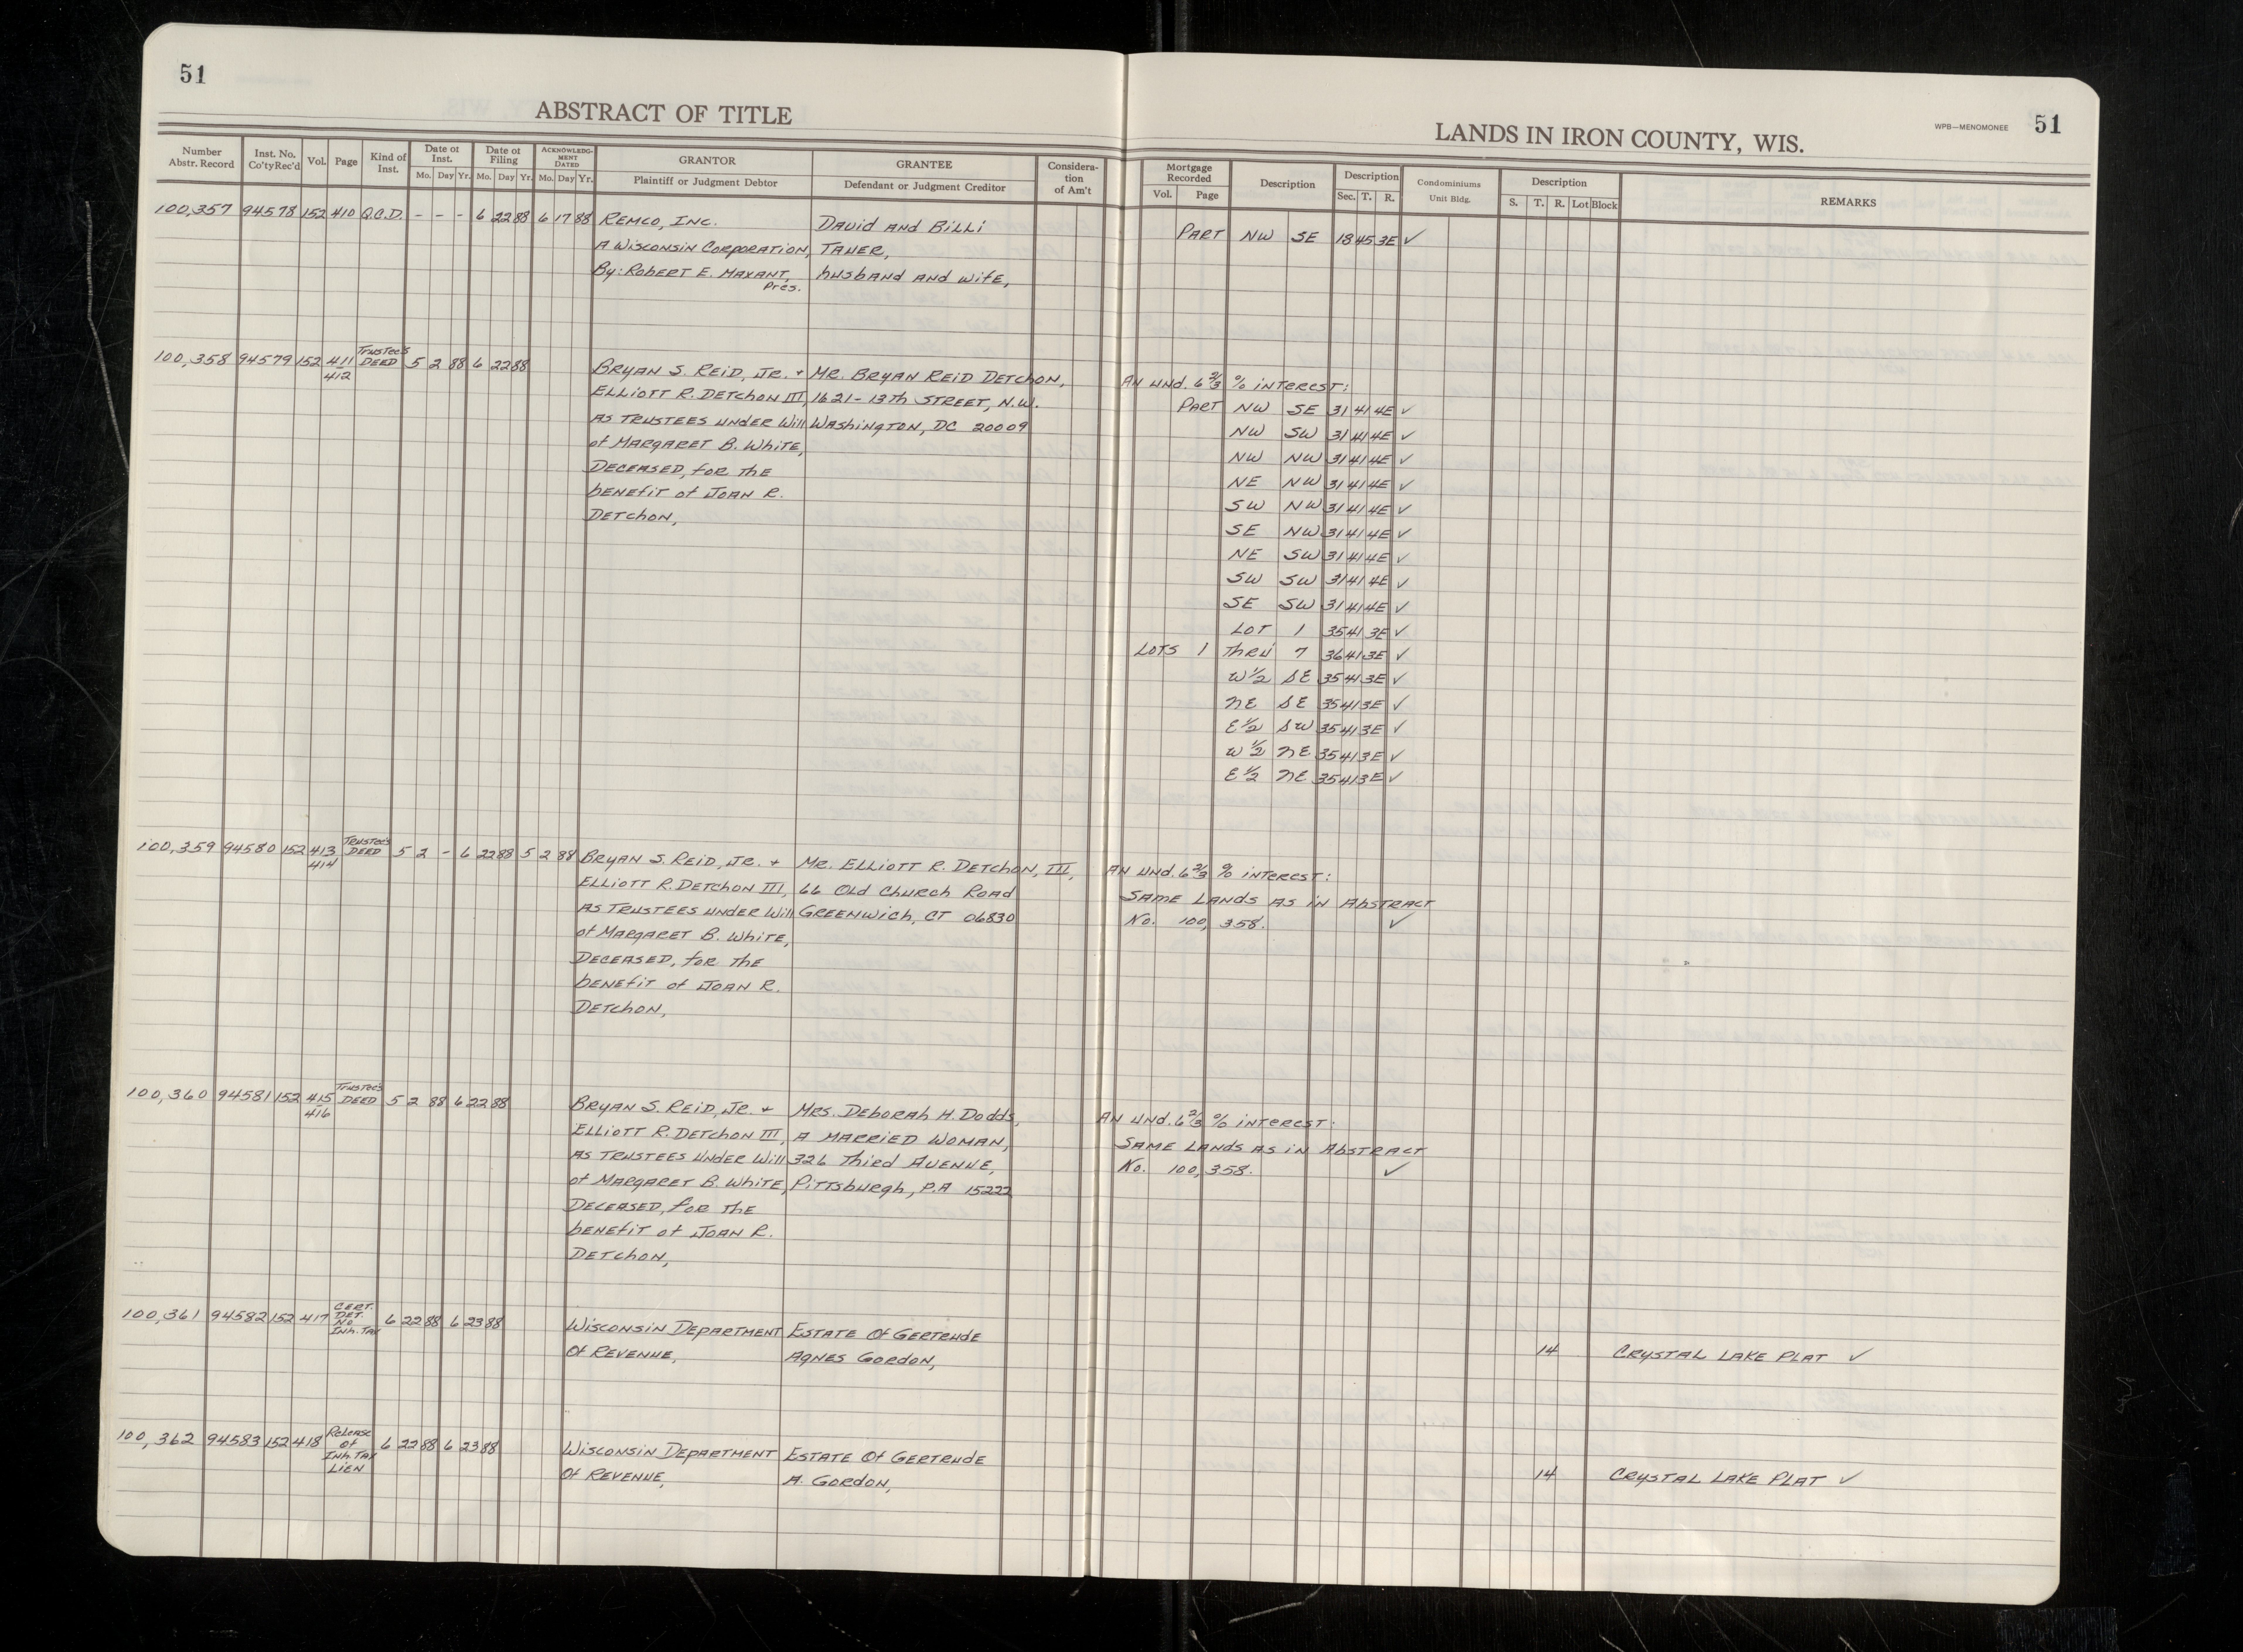 51
ABSTRACT OF TITLE
LANDS IN IRON COUNTY, WIS.
WPB—MENOMONEE 51
Number Abstr. Record Inst. No. Co'ty Rec'd Vol. Page Kind of Inst. Date of Inst. Mo. Day Yr. Date of Filing Mo. Day Yr. ACKNOWLEDG-MENT DATED Mo. Day Yr. GRANTOR Plaintiff or Judgment Debtor GRANTEE Defendant or Judgment Creditor Considera-tion of Am't
Mortgage Recorded Vol. Page Description Description Sec. T. R. Condominiums Unit Bldg. Description S. T. R. Lot Block REMARKS
100,357 94578 152 410 Q.C.D. - - - 6 22 88 6 17 88 REMCO, INC. DAVID AND BILLI
A WISCONSIN CORPORATION, TAUER, PART NW SE 18 45 3E ✓
By: ROBERT E. MAXANT, husband and wife,
Pres.
100,358 94579 152 411 412 Trustee's DEED 5 2 88 6 22 88 BRYAN S. REID, JR. + MR. BRYAN REID DETCHON, AN UND. 6 2/3 % INTEREST:
ELLIOTT R. DETCHON III, 1621-13th STREET, N.W. PART NW SE 31 41 4E ✓
AS TRUSTEES UNDER Will WASHINGTON, DC 20009 NW SW 31 41 4E ✓
of MARGARET B. WHITE, NW NW 31 41 4E ✓
DECEASED, for the NE NW 31 41 4E ✓
benefit of JOAN R. SW NW 31 41 4E ✓
DETCHON, SE NW 31 41 4E ✓
NE SW 31 41 4E ✓
SW SW 31 41 4E ✓
SE SW 31 41 4E ✓
LOT 1 35 41 3E ✓
LOTS 1 Thru 7 36 41 3E ✓
W 1/2 SE 35 41 3E ✓
NE SE 35 41 3E ✓
E 1/2 SW 35 41 3E ✓
W 1/2 NE 35 41 3E ✓
E 1/2 NE 35 41 3E ✓
100,359 94580 152 413 414 TRUSTEE'S DEED 5 2 - 6 22 88 5 2 88 BRYAN S. REID, JR. + MR. ELLIOTT R. DETCHON, III, AN UND. 6 2/3 % INTEREST:
ELLIOTT R. DETCHON III, 66 Old Church Road SAME LANDS AS IN ABSTRACT
AS TRUSTEES UNDER Will GREENWICH, CT 06830 No. 100,358. ✓
of MARGARET B. WHITE,
DECEASED, for the
benefit of JOAN R.
DETCHON,
100,360 94581 152 415 416 Trustee's DEED 5 2 88 6 22 88 BRYAN S. REID, JR. + MRS. DEBORAH H. DODDS, AN UND. 6 2/3 % INTEREST:
ELLIOTT R. DETCHON III, A MARRIED WOMAN, SAME LANDS AS IN ABSTRACT
AS TRUSTEES UNDER Will 326 Third Avenue, No. 100,358. ✓
of MARGARET B. WHITE, PITTSBURGH, P.A 15222
DECEASED, for the
benefit of JOAN R.
DETCHON,
100,361 94582 152 417 CERT. DET. NO INH. TAX 6 22 88 6 23 88 WISCONSIN DEPARTMENT ESTATE Of GERTRUDE
Of REVENUE, AGNES GORDON, 14 CRYSTAL LAKE PLAT ✓
100,362 94583 152 418 Release of Inh. TAX LIEN 6 22 88 6 23 88 WISCONSIN DEPARTMENT ESTATE Of GERTRUDE
Of REVENUE, A. GORDON, 14 CRYSTAL LAKE PLAT ✓